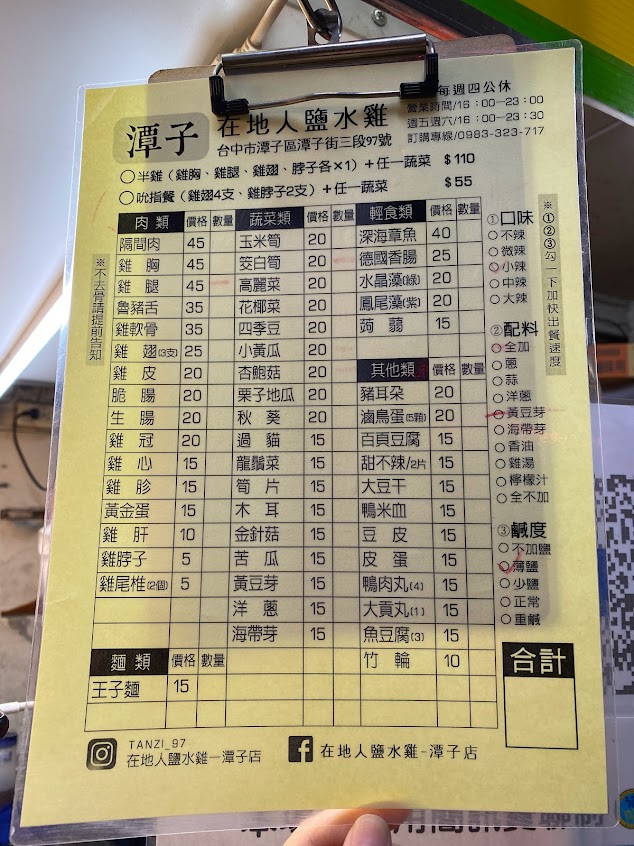 潭子
在地人鹽水雞
台中市潭子區潭子街三段97號
每週四公休
營業時間/16：00-23：00
週五週六/16：00-23：30
訂購專線/0983-323-717
○半雞（雞胸、雞腿、雞翅、脖子各×1）＋任一蔬菜 $110
○吮指餐（雞翅4支、雞脖子2支）＋任一蔬菜 $55
※不去骨請提前告知
肉類 價格 數量
隔間肉 45
雞胸 45
雞腿 45
魯豬舌 35
雞軟骨 35
雞翅(3支) 25
雞皮 20
脆腸 20
生腸 20
雞冠 20
雞心 15
雞胗 15
黃金蛋 15
雞肝 10
雞脖子 5
雞尾椎(2個) 5
麵類 價格 數量
王子麵 15
蔬菜類 價格 數量
玉米筍 20
筊白筍 20
高麗菜 20
花椰菜 20
四季豆 20
小黃瓜 20
杏鮑菇 20
栗子地瓜 20
秋葵 20
過貓 15
龍鬚菜 15
筍片 15
木耳 15
金針菇 15
苦瓜 15
黃豆芽 15
洋蔥 15
海帶芽 15
輕食類 價格 數量
深海章魚 40
德國香腸 25
水晶藻(綠) 20
鳳尾藻(紫) 20
蒟蒻 15
其他類 價格 數量
豬耳朵 20
滷鳥蛋(5顆) 20
百頁豆腐 15
甜不辣/2片 15
大豆干 15
鴨米血 15
豆皮 15
皮蛋 15
鴨肉丸(4) 15
大貢丸(1) 15
魚豆腐(3) 15
竹輪 10
①口味
○不辣
○微辣
○小辣
○中辣
○大辣
②配料
○全加
○蔥
○蒜
○洋蔥
○黃豆芽
○海帶芽
○香油
○雞湯
○檸檬汁
○全不加
③鹹度
○不加鹽
○薄鹽
○少鹽
○正常
○重鹹
※①②③勾一下加快出餐速度
合計
TANZI_97
在地人鹽水雞－潭子店
在地人鹽水雞-潭子店